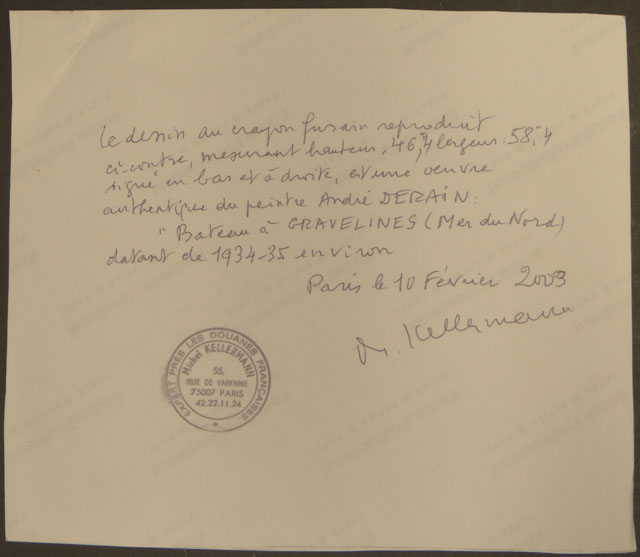 Le dessin au crayon fusain reproduit
ci-contre, mesurant hauteur, 46,4 largeur: 58,4
signé en bas et à droite, est une oeuvre
authentique du peintre André DERAIN:
" Bateau à GRAVELINES (Mer du Nord)
datant de 1934-35 environ
Paris le 10 Février 2003
M. Kellermann
EXPERT PRÈS LES DOUANES FRANÇAISES
Michel KELLERMANN
55,
RUE DE VARENNE
75007 PARIS
42.22.11.24